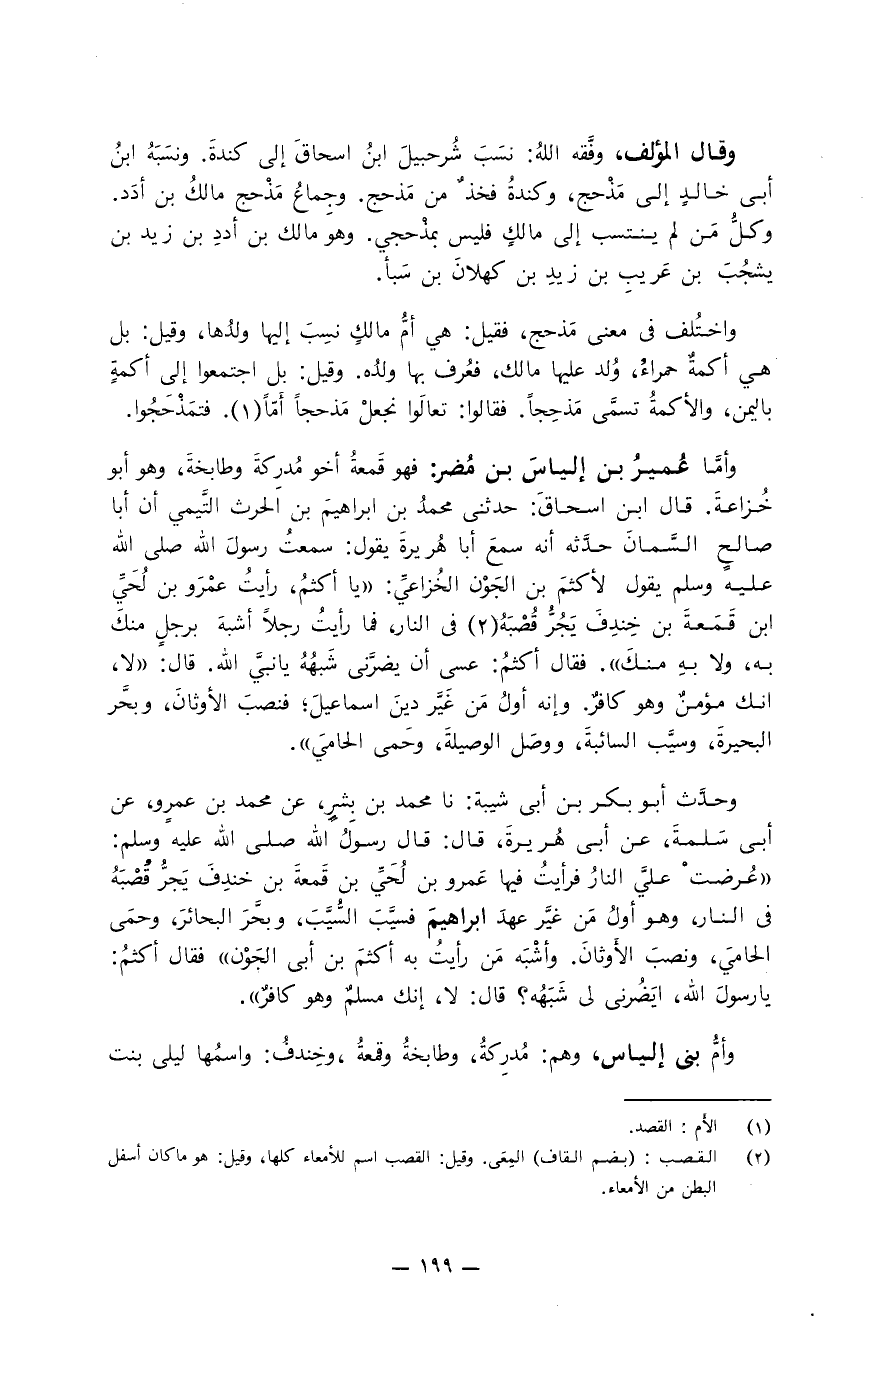 وقال المؤلف، وفَّقه اللهُ: نسَبَ شُرحبيلَ ابنُ اسحاقَ إلى كندةَ. ونسَبَهُ ابنُ
أبى خالدٍ إلى مَذْحج، وكندةُ فخذٌ من مَذحج. وجِماعُ مَذْحج مالكُ بن أدَد.
وكلُّ مَن لم ينتسب إلى مالكٍ فليس بمذْحجي. وهو مالك بن أددِ بن زيد بن
يشجُبَ بن عَريبِ بن زيدِ بن كهلانَ بن سَبأ.
واختُلف فى معنى مَذحج، فقيل: هي أمُّ مالكٍ نسِبَ إليها ولدُها، وقيل: بل
هي أكمةٌ حمراءُ، وُلد عليها مالك، فعُرف بها ولدُه. وقيل: بل اجتمعوا إلى أكمةٍ
باليمن، والأكمةُ تسمَّى مَذحِجاً. فقالوا: تعالَوا نجعلْ مَذحجاً أَمّاً(١). فتمَذْحَجُوا.
وأمَّا عُميرُ بن إلياسَ بن مُضر: فهو قَمعةُ أخو مُدرِكةَ وطابخةَ، وهو أبو
خُزاعةَ. قال ابن اسحاقَ: حدثنى محمدُ بن ابراهيمَ بن الحرث التَّيمي أن أبا
صالحٍ السَّمانَ حدَّثه أنه سمعَ أبا هُريرةَ يقول: سمعتُ رسولَ الله صلى الله
عليه وسلم يقول لأكثمَ بن الجَوْن الخُزاعيِّ: «يا أكثمُ، رأيتُ عمْرَو بن لُحَيِّ
ابن قَمَعةَ بن خِندِفَ يَجُرُّ قُصْبَهُ(٢) فى النار، فما رأيتُ رجلاً أشبهَ برجلٍ منكَ
به، ولا بهِ منكَ». فقال أكثمُ: عسى أن يضرَّنى شَبهُهُ يانبيَّ الله. قال: «لا،
انك مؤمنٌ وهو كافرٌ. وإنه أولُ مَن غَيَّر دينَ اسماعيلَ؛ فنصبَ الأوثانَ، وبحَّر
البحيرةَ، وسيَّب السائبةَ، ووصَل الوصيلةَ، وحَمى الحامِيَ».
وحدَّث أبو بكر بن أبى شيبة: نا محمد بن بِشرٍ، عن محمد بن عمرو، عن
أبى سَلمةَ، عن أبى هُريرةَ، قال: قال رسولُ الله صلى الله عليه وسلم:
«عُرضتْ عليَّ النارُ فرأيتُ فيها عَمرو بن لُحَيِّ بن قَمعةَ بن خندِفَ يَجرُّ قُصْبَهُ
فى النار، وهو أولُ مَن غيَّر عهدَ ابراهيمَ فسيَّبَ السُّيَّبَ، وبحَّرَ البحائرَ، وحمَى
الحامي، ونصبَ الأَوثانَ. وأشْبَه مَن رأيتُ به أكثمَ بن أبى الجَوْن» فقال أكثمُ:
يارسولَ الله، ايَضُرنى لى شَبَهُه؟ قال: لا، إنك مسلمٌ وهو كافرٌ».
وأمُّ بنى إلياس، وهم: مُدرِكةُ، وطابخةُ وقمعةُ ،وخِندفُ: واسمُها ليلى بنت
(١) الأم : القصد.
(٢) القصب : (بضم القاف) المِعَى. وقيل: القصب اسم للأمعاء كلها، وقيل: هو ماكان أسفل
البطن من الأمعاء.
— ١٩٩ —